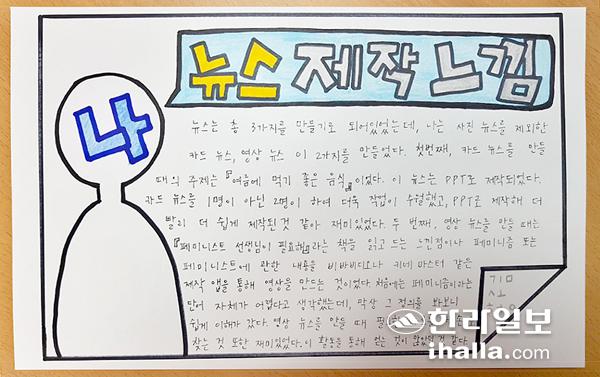 뉴스 제작 느낌
나
뉴스는 총 3가지를 만들기로 되어있었는데, 나는 사진 뉴스를 제외한
카드 뉴스, 영상 뉴스 이 2가지를 만들었다. 첫번째, 카드 뉴스를 만들
때의 주제는 『여름에 먹기 좋은 음식』이었다. 이 뉴스는 PPT로 제작되었다.
카드 뉴스를 1명이 아닌 2명이 하여 더욱 작업이 수월했고, PPT로 제작해 더
빨리 더 쉽게 제작된 것 같아 재미있었다. 두 번째, 영상 뉴스를 만들 때는
『페미니스트 선생님이 필요해』라는 책을 읽고 드는 느낀점이나 페미니즘 또는
페미니스트에 관한 내용을 비바비디오나 키네마스터 같은
제작 앱을 통해 영상을 만드는 것이었다. 처음에는 페미니즘이라는
단어 자체가 어렵다고 생각했는데, 막상 그 정의를 봐보니
쉽게 이해가 갔다. 영상 뉴스를 만들 때
찾는 것 또한 재미있었다. 이 활동을 통해 얻는 것이 많았던 것 같다.
한라일보
ihalla.com